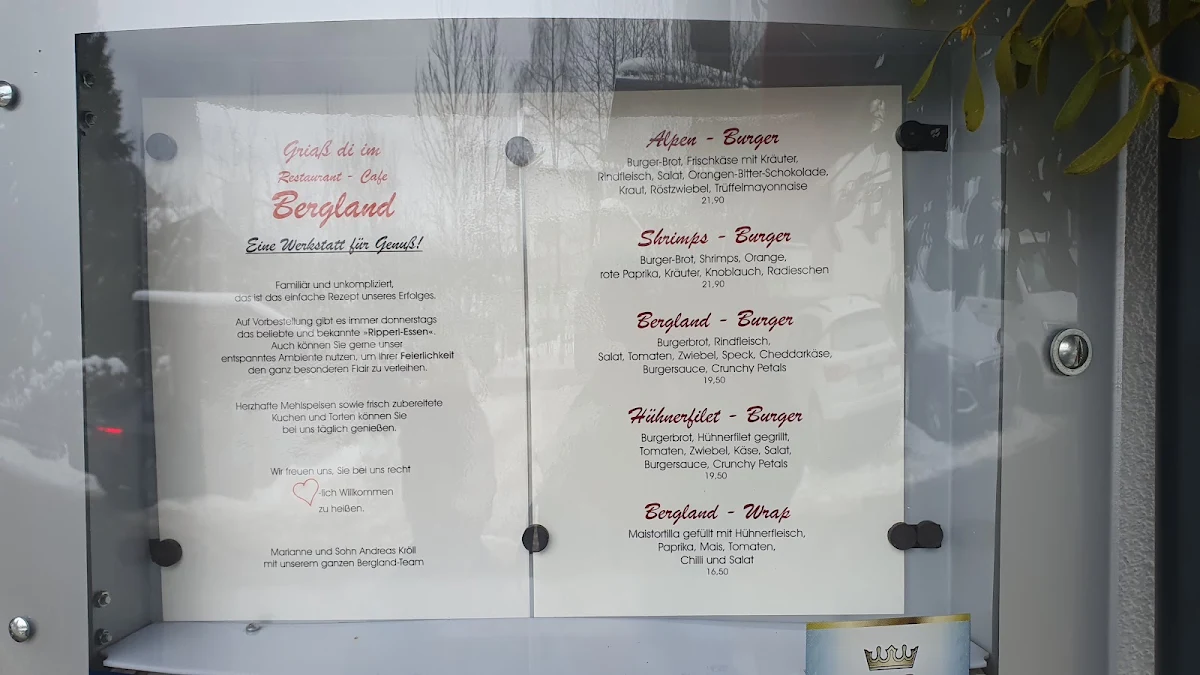 Griaß di im
Restaurant - Cafe
Bergland
Eine Werkstatt für Genuß!
Familiär und unkompliziert,
das ist das einfache Rezept unseres Erfolges.
Auf Vorbestellung gibt es immer donnerstags
das beliebte und bekannte »Ripperl-Essen«.
Auch können Sie gerne unser
entspanntes Ambiente nutzen, um Ihrer Feierlichkeit
den ganz besonderen Flair zu verleihen.
Herzhafte Mehlspeisen sowie frisch zubereitete
Kuchen und Torten können Sie
bei uns täglich genießen.
Wir freuen uns, Sie bei uns recht
-lich Willkommen
zu heißen.
Marianne und Sohn Andreas Kröll
mit unserem ganzen Bergland-Team
Alpen - Burger
Burger-Brot, Frischkäse mit Kräuter,
Rindfleisch, Salat, Orangen-Bitter-Schokolade,
Kraut, Röstzwiebel, Trüffelmayonnaise
21,90
Shrimps - Burger
Burger-Brot, Shrimps, Orange,
rote Paprika, Kräuter, Knoblauch, Radieschen
21,90
Bergland - Burger
Burgerbrot, Rindfleisch,
Salat, Tomaten, Zwiebel, Speck, Cheddarkäse,
Burgersauce, Crunchy Petals
19,50
Hühnerfilet - Burger
Burgerbrot, Hühnerfilet gegrillt,
Tomaten, Zwiebel, Käse, Salat,
Burgersauce, Crunchy Petals
19,50
Bergland - Wrap
Maistortilla gefüllt mit Hühnerfleisch,
Paprika, Mais, Tomaten,
Chilli und Salat
16,50